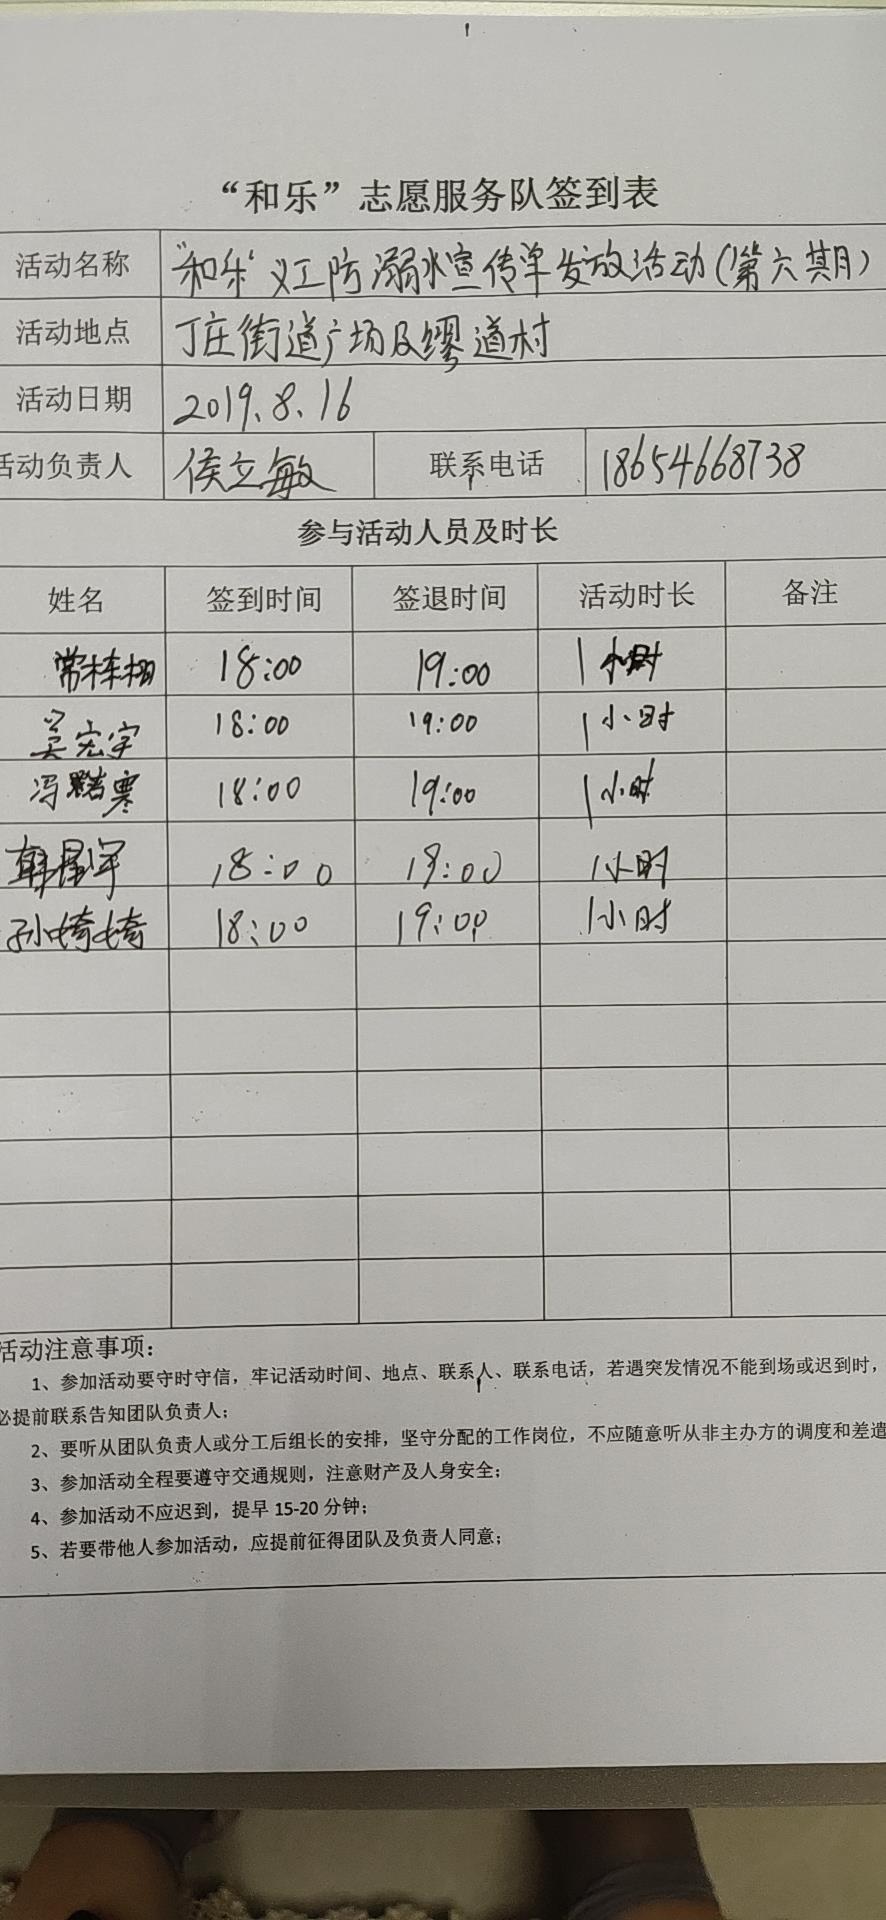 “和乐”志愿服务队签到表
活动名称 “和乐”义工防溺水宣传单发放活动(第六期)
活动地点 丁庄街道广场及缪道村
活动日期 2019.8.16
活动负责人 侯立敏 联系电话 18654668738
参与活动人员及时长
姓名 签到时间 签退时间 活动时长 备注
常栋栩 18:00 19:00 1小时
吴宏宇 18:00 19:00 1小时
冯 寒 18:00 19:00 1小时
韩 18:00 19:00 1小时
孙婍婍 18:00 19:00 1小时
活动注意事项：
1、参加活动要守时守信，牢记活动时间、地点、联系人、联系电话，若遇突发情况不能到场或迟到时，
必提前联系告知团队负责人；
2、要听从团队负责人或分工后组长的安排，坚守分配的工作岗位，不应随意听从非主办方的调度和差遣
3、参加活动全程要遵守交通规则，注意财产及人身安全；
4、参加活动不应迟到，提早 15-20 分钟；
5、若要带他人参加活动，应提前征得团队及负责人同意；